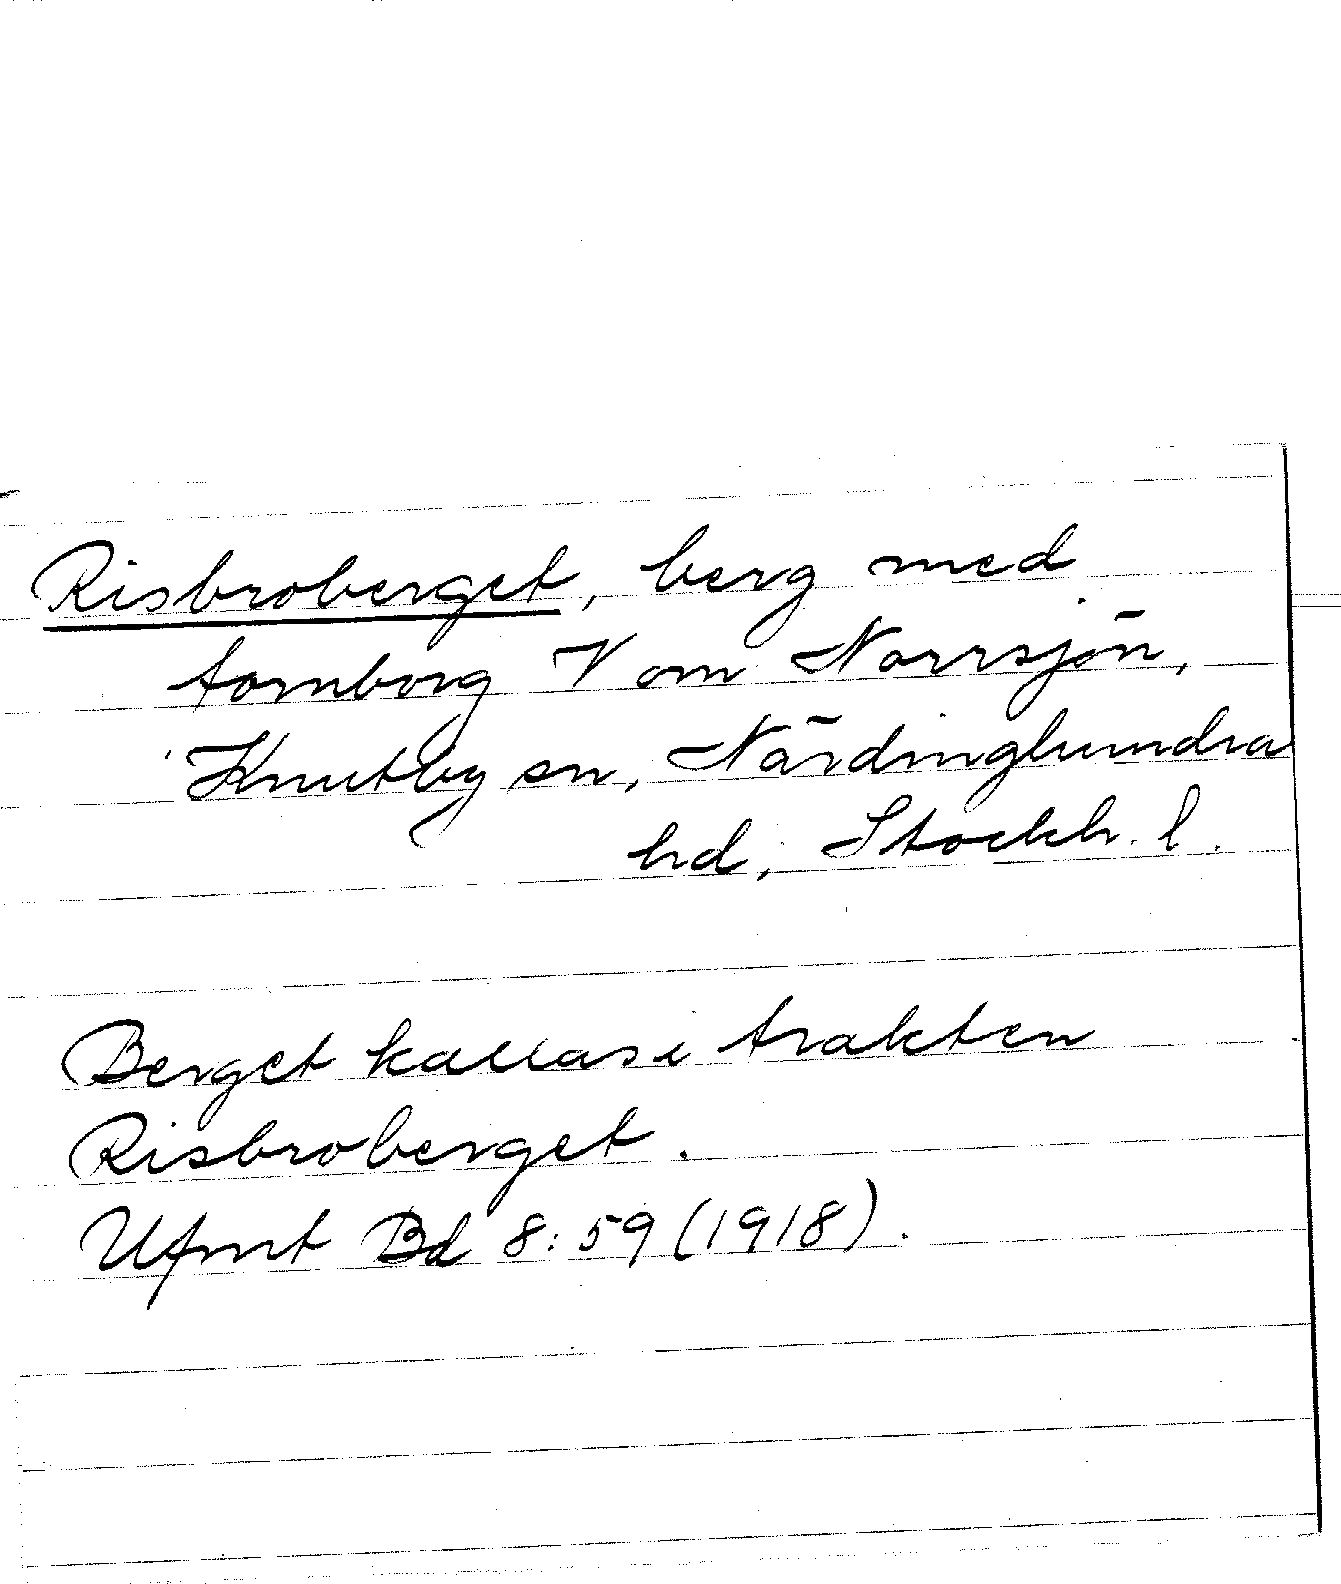 Risbroberget, berg med
fornborg V om Norrsjön,
Knutby sn, Närdinghundra
hd, Stockh. l.
Berget kallas i trakten
Risbroberget.
Ufmt Bd 8:59 (1918).